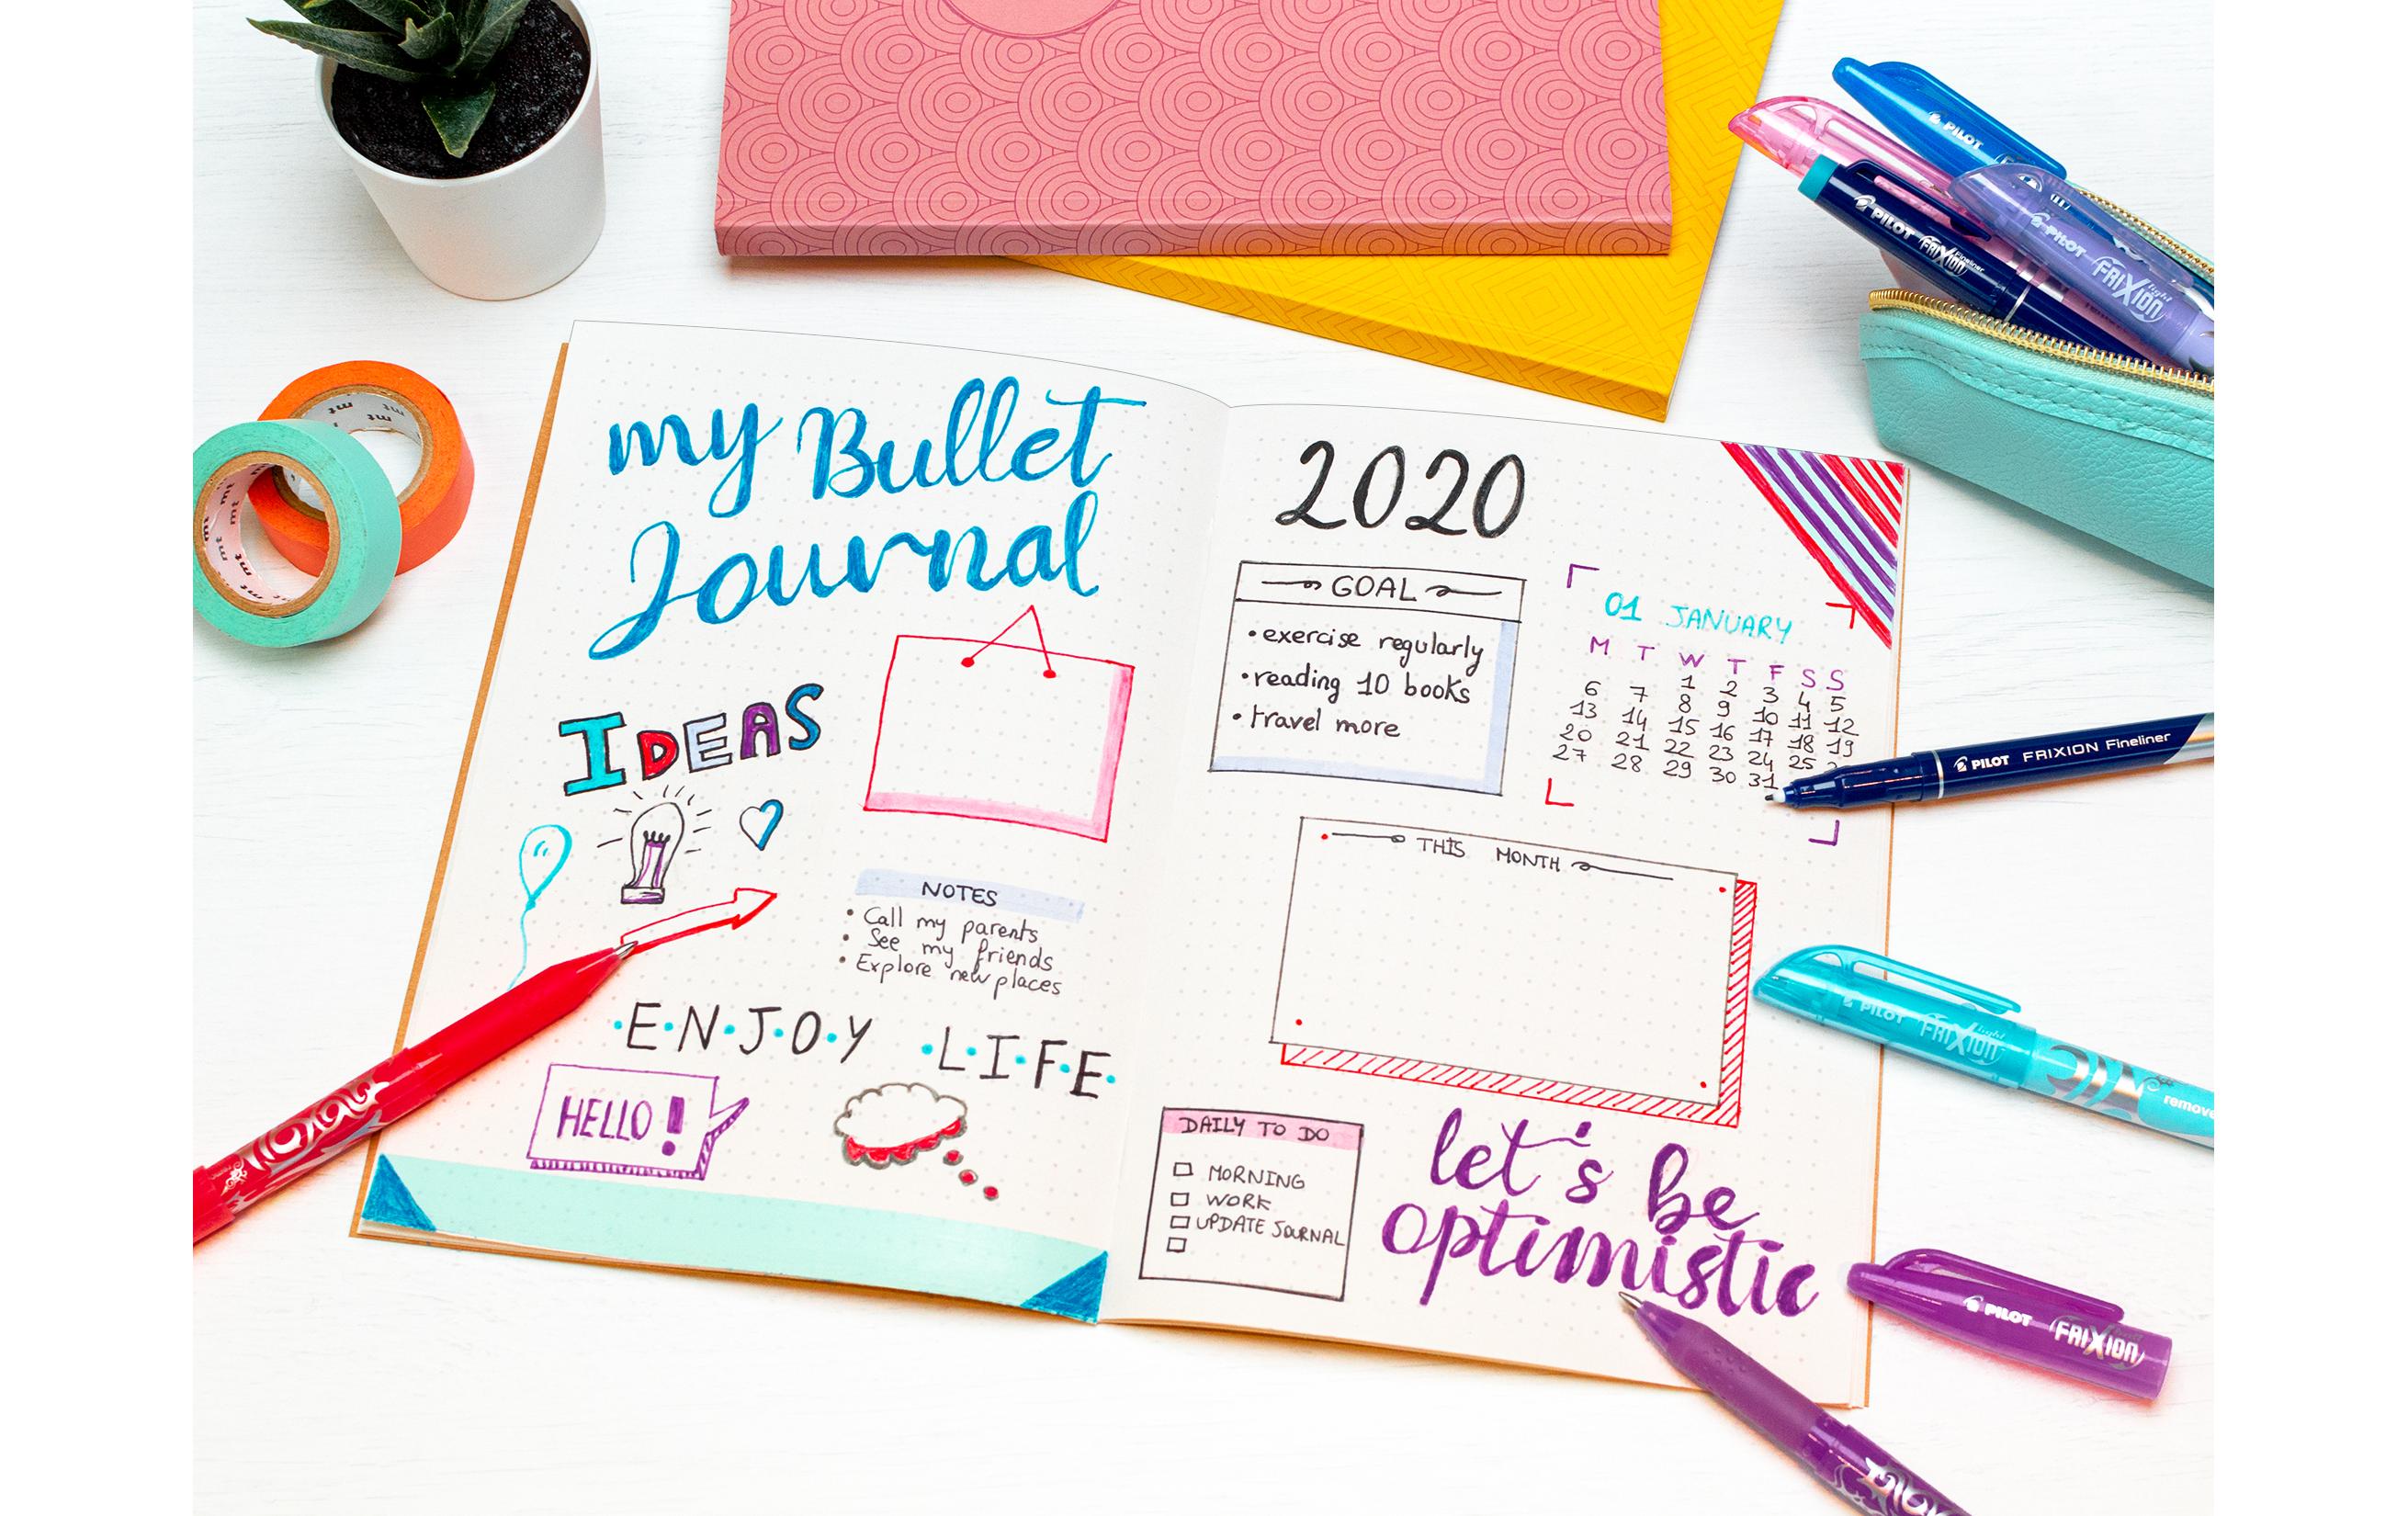 my Bullet
Journal
IDEAS
NOTES
• Call my parents
• See my friends
• Explore new places
E·N·J·O·Y ·L·I·F·E·
HELLO!
2020
GOAL
• exercise regularly
• reading 10 books
• travel more
01 JANUARY
M T W T F S S
1 2 3 4 5
6 7 8 9 10 11 12
13 14 15 16 17 18 19
20 21 22 23 24 25
27 28 29 30 31
THIS MONTH
DAILY TO DO
MORNING
WORK
UPDATE JOURNAL
let's be
optimistic
PILOT
PILOT FRIXION Fineliner
PILOT FRIXION light
PILOT FRIXION Fineliner
PILOT FRIXION light
remove
PILOT FRIXION
mt mt mt
mt mt mt mt